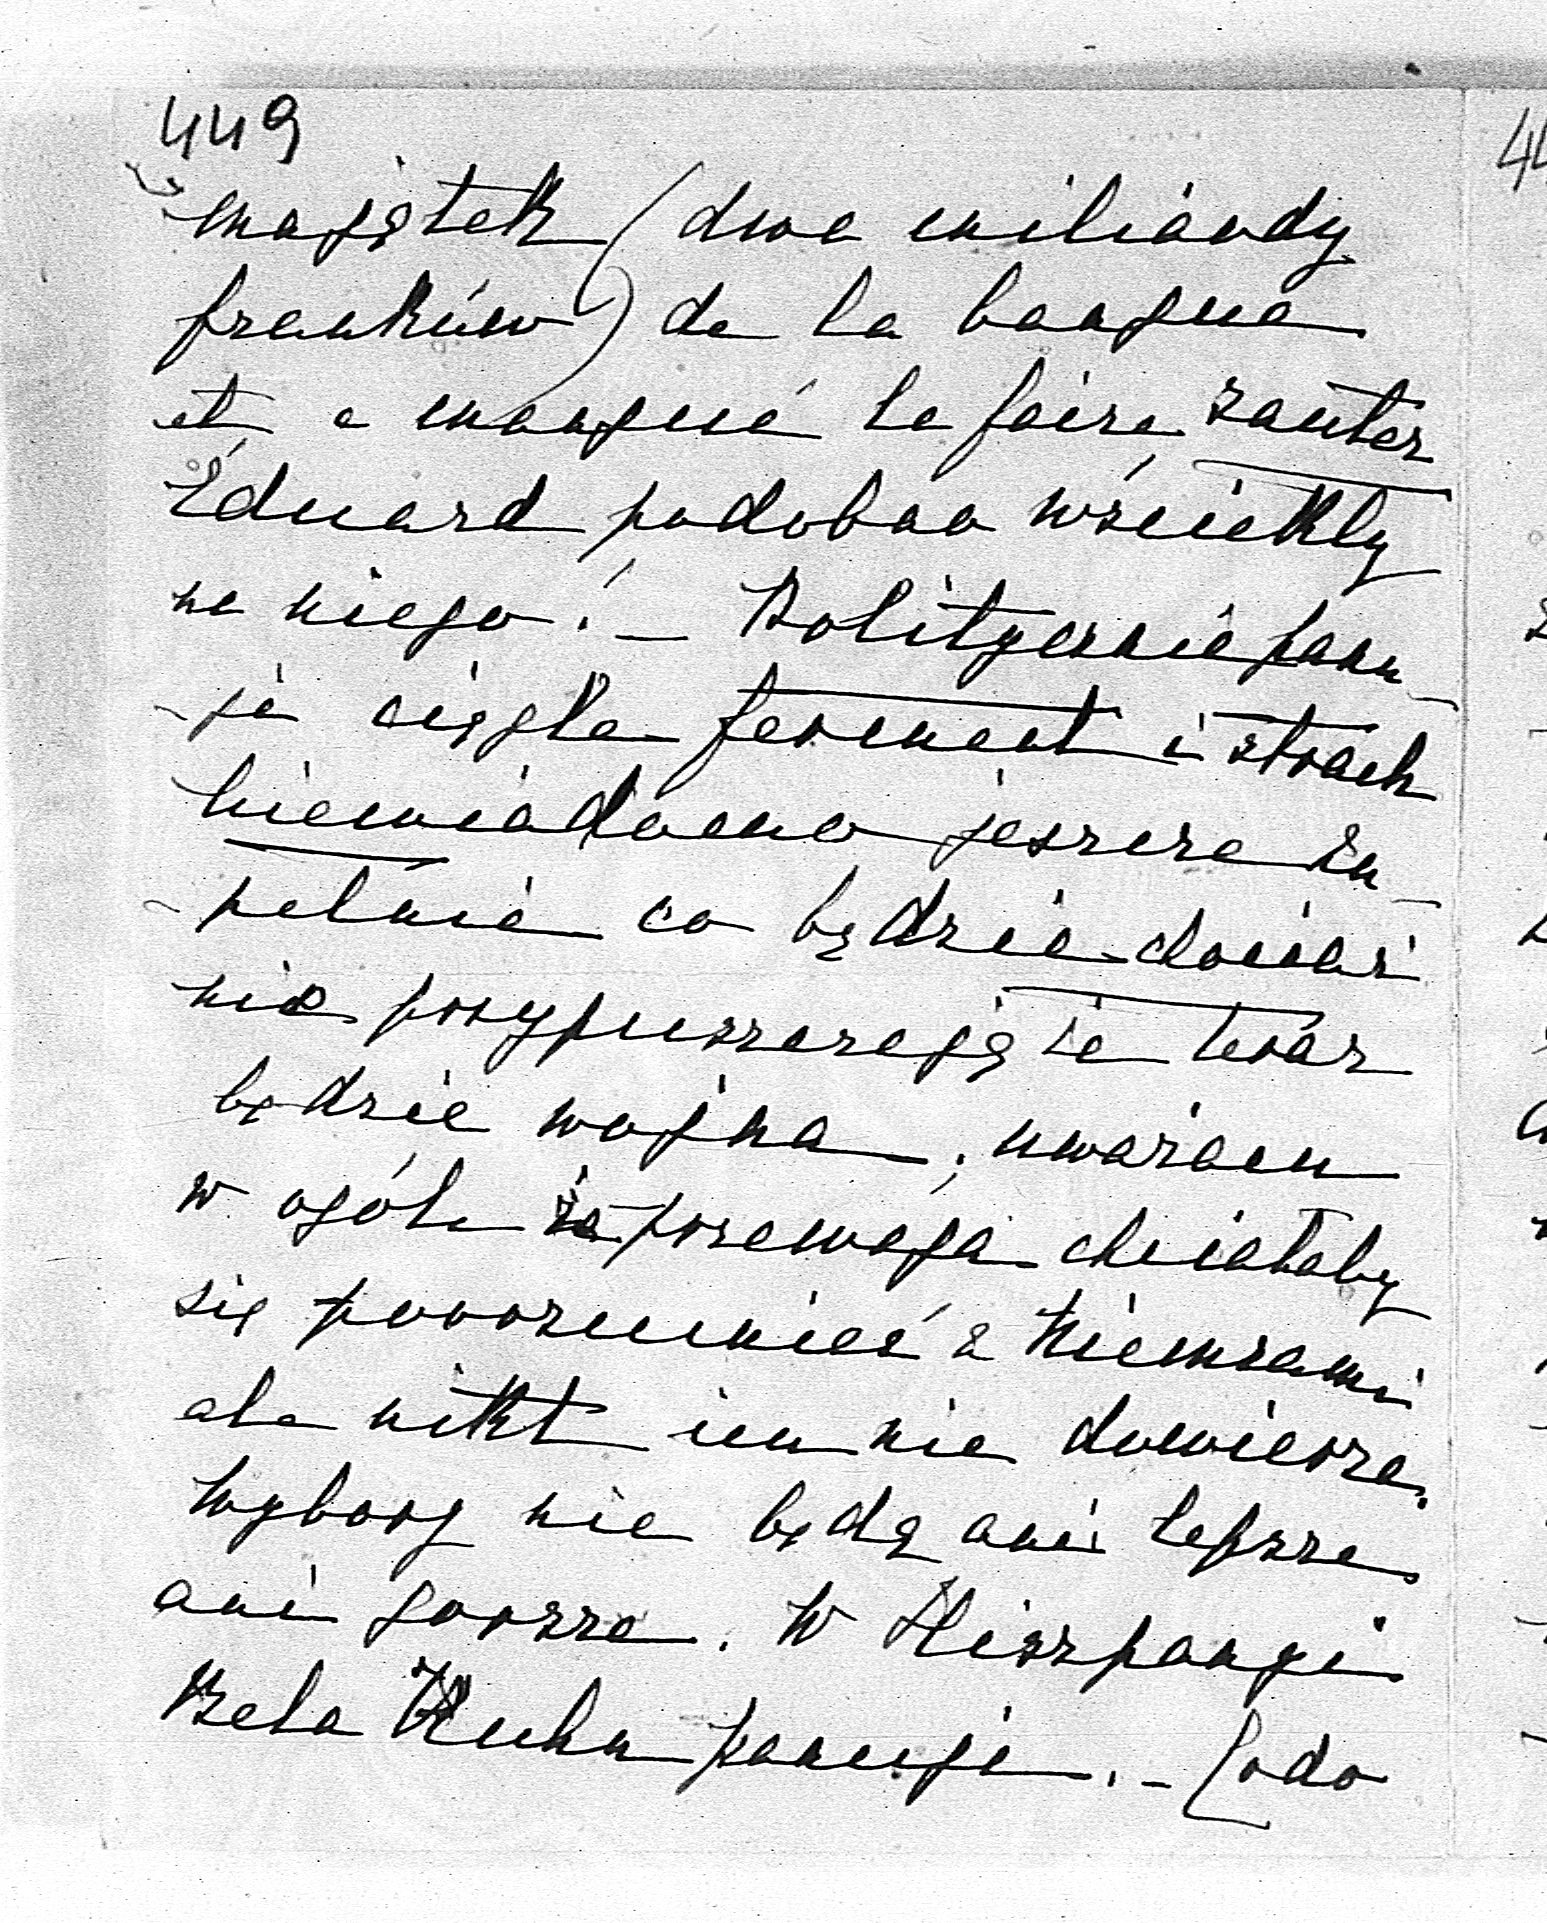 449
majątek (dwa miliardy
franków) de la banque
et a manqué la faire sauter
Eduard podobno wściekły
na niego. – Politycznie panu-
-je ciągle ferment i strach
niewiadomo jeszcze zu-
-pełnie co będzie chociaż
nie przypuszczają że teraz
będzie wojna, uważam
w ogóle że przewaga chciałaby
się porozumieć z Niemcami
ale nikt im nie dowierza.
Wybory nie będą ani lepsze
ani gorsze. W Hiszpanji
Bela Kuhn panuje. –